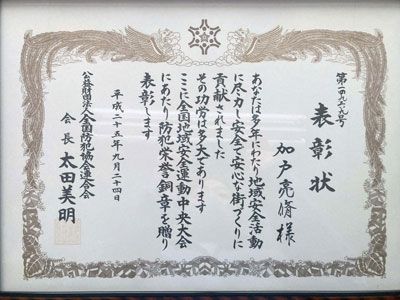 表彰状
加戸亮脩様
あなたは多年にわたり地域安全活動
に尽力し安全で安心な街づくりに
貢献されました
その功労は多大であります
ここに全国地域安全運動中央大会
にあたり防犯栄誉銅章を贈り
表彰します
平成二十五年九月二十四日
公益財団法人全国防犯協会連合会
会長 太田美明